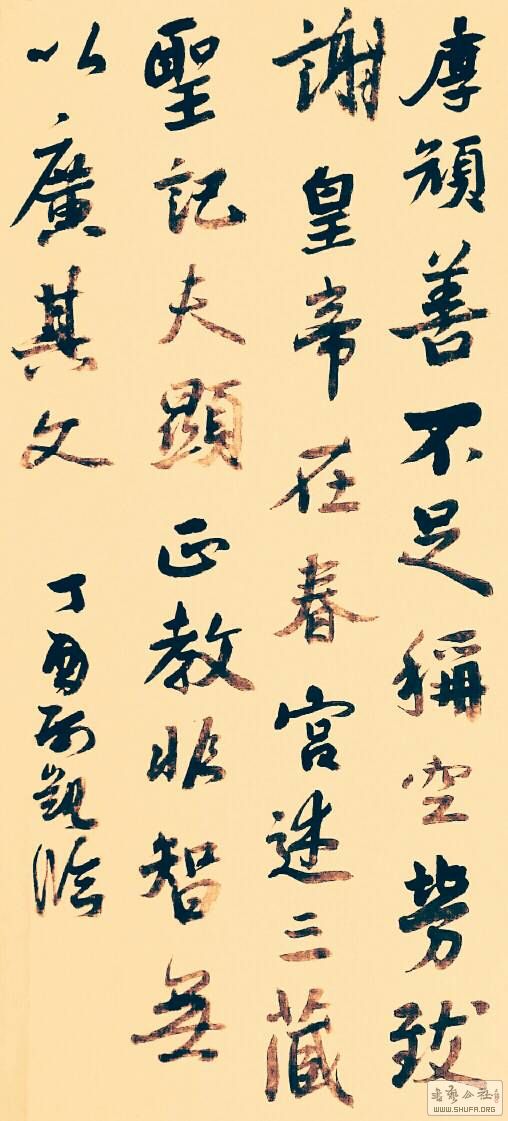 厚顏善不足稱空勞致
謝皇帝在春宮述三藏
聖記夫顯正教非智無
以廣其文
丁酉臨
書藝公社
WWW.SHUFA.ORG